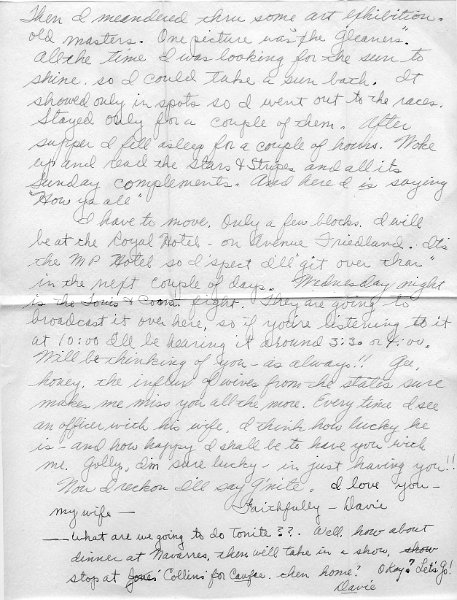 Then I meandered thru some art exhibition.
old masters. One picture was "the Gleaners".
All the time I was looking for the sun to
shine, so I could take a sun bath. It
showed only in spots so I went out to the races.
Stayed only for a couple of them. After
supper I fell asleep for a couple of hours. Woke
up and read the Stars & Stripes and all its
Sunday complements. And here I is saying
"How ya all"
I have to move. Only a few blocks. I will
be at the Royal Hotel - on Avenue Friedland. It's
the MP Hotel so I spect I'll git over thar"
in the next couple of days. Wednesday night
is the Louis & Conn fight. They are going to
broadcast it over here, so if you're listening to it
at 10:00 I'll be hearing it around 3:30 or 4:00.
Will be thinking of you - as always!! Gee,
honey, the influx of wives from the states sure
makes me miss you all the more. Every time I see
an officer with his wife, I think how lucky he
is - and how happy I shall be to have you with
me. Golly, I'm sure lucky - in just having you!!
Now I reckon I'll say G'nite. I love you -
my wife - Faithfully - Davie
- What are we going to do tonite??. Well, how about
dinner at Navarres, then will take in a show, show
stop at Collins' for Caufee. then home? Okay? Let's Go!
Davie